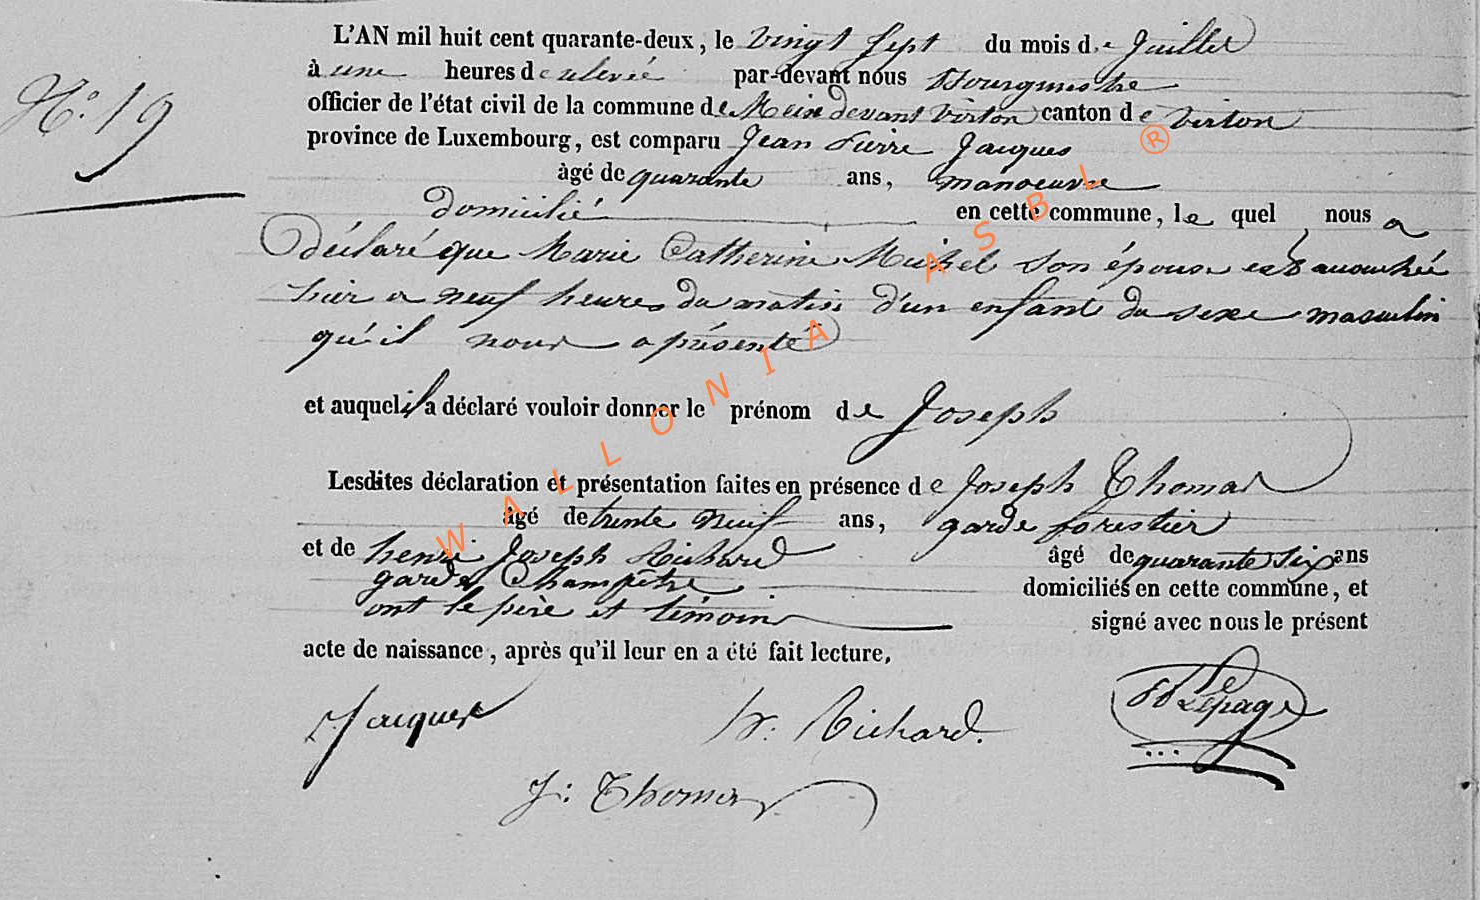 N.° 19
L'AN mil huit cent quarante-deux, le vingt sept du mois de Juillet
à une heures de relevée par-devant nous Bourgmestre
officier de l'état civil de la commune de Meix devant Virton canton de Virton
province de Luxembourg, est comparu Jean Pierre Jacques
âgé de quarante ans, manoeuvre
domicilié en cette commune, le quel nous a
déclaré que Marie Catherine Michel son épouse est accouchée
hier a neuf heures du matin d'un enfant du sexe masculin
qu'il nous a présenté
et auquel il a déclaré vouloir donner le prénom de Joseph
Lesdites déclaration et présentation faites en présence de Joseph Thomas
âgé de trente neuf ans, garde forestier
et de henri Joseph Richard âgé de quarante six ans
garde Champêtre domiciliés en cette commune, et
ont le père et témoins signé avec nous le présent
acte de naissance, après qu'il leur en a été fait lecture.
Jacques
h. Richard.
Lepage
J: Thomas
WALLONIA ASBL ®